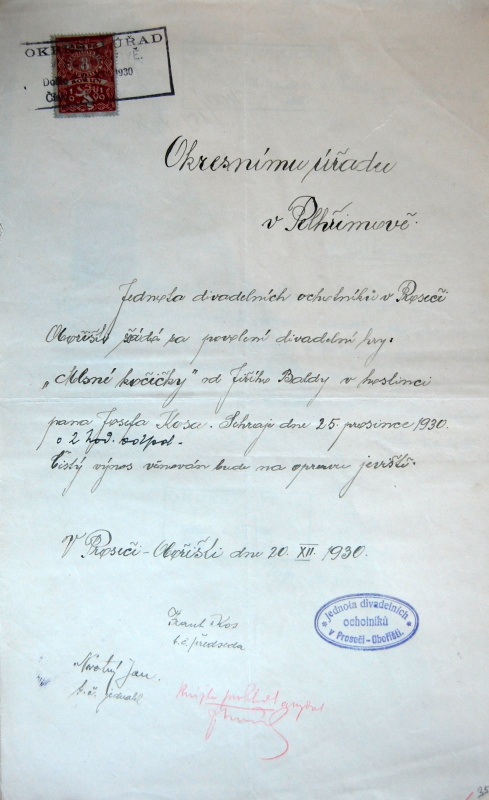 OKRESNÍ ÚŘAD
1930
8
Okresnímu úřadu
v Pelhřimově.
Jednota divadelních ochotníků v Proseči
Obořišti žádá za povolení divadelní hry:
„Mlsné kočičky" od Jiřího Baldy v hostinci
pana Josefa Kosa. Sehraje dne 25. prosince 1930.
o 2 hod. odpol.
Čistý výnos věnován bude na opravu jeviště.
V Proseči - Obořišti dne 20. XII. 1930.
Jednota divadelních
ochotníků
v Proseči-Obořišti.
Frant. Kos
t. č. předseda
Novotný Jan.
t. č. jednatel